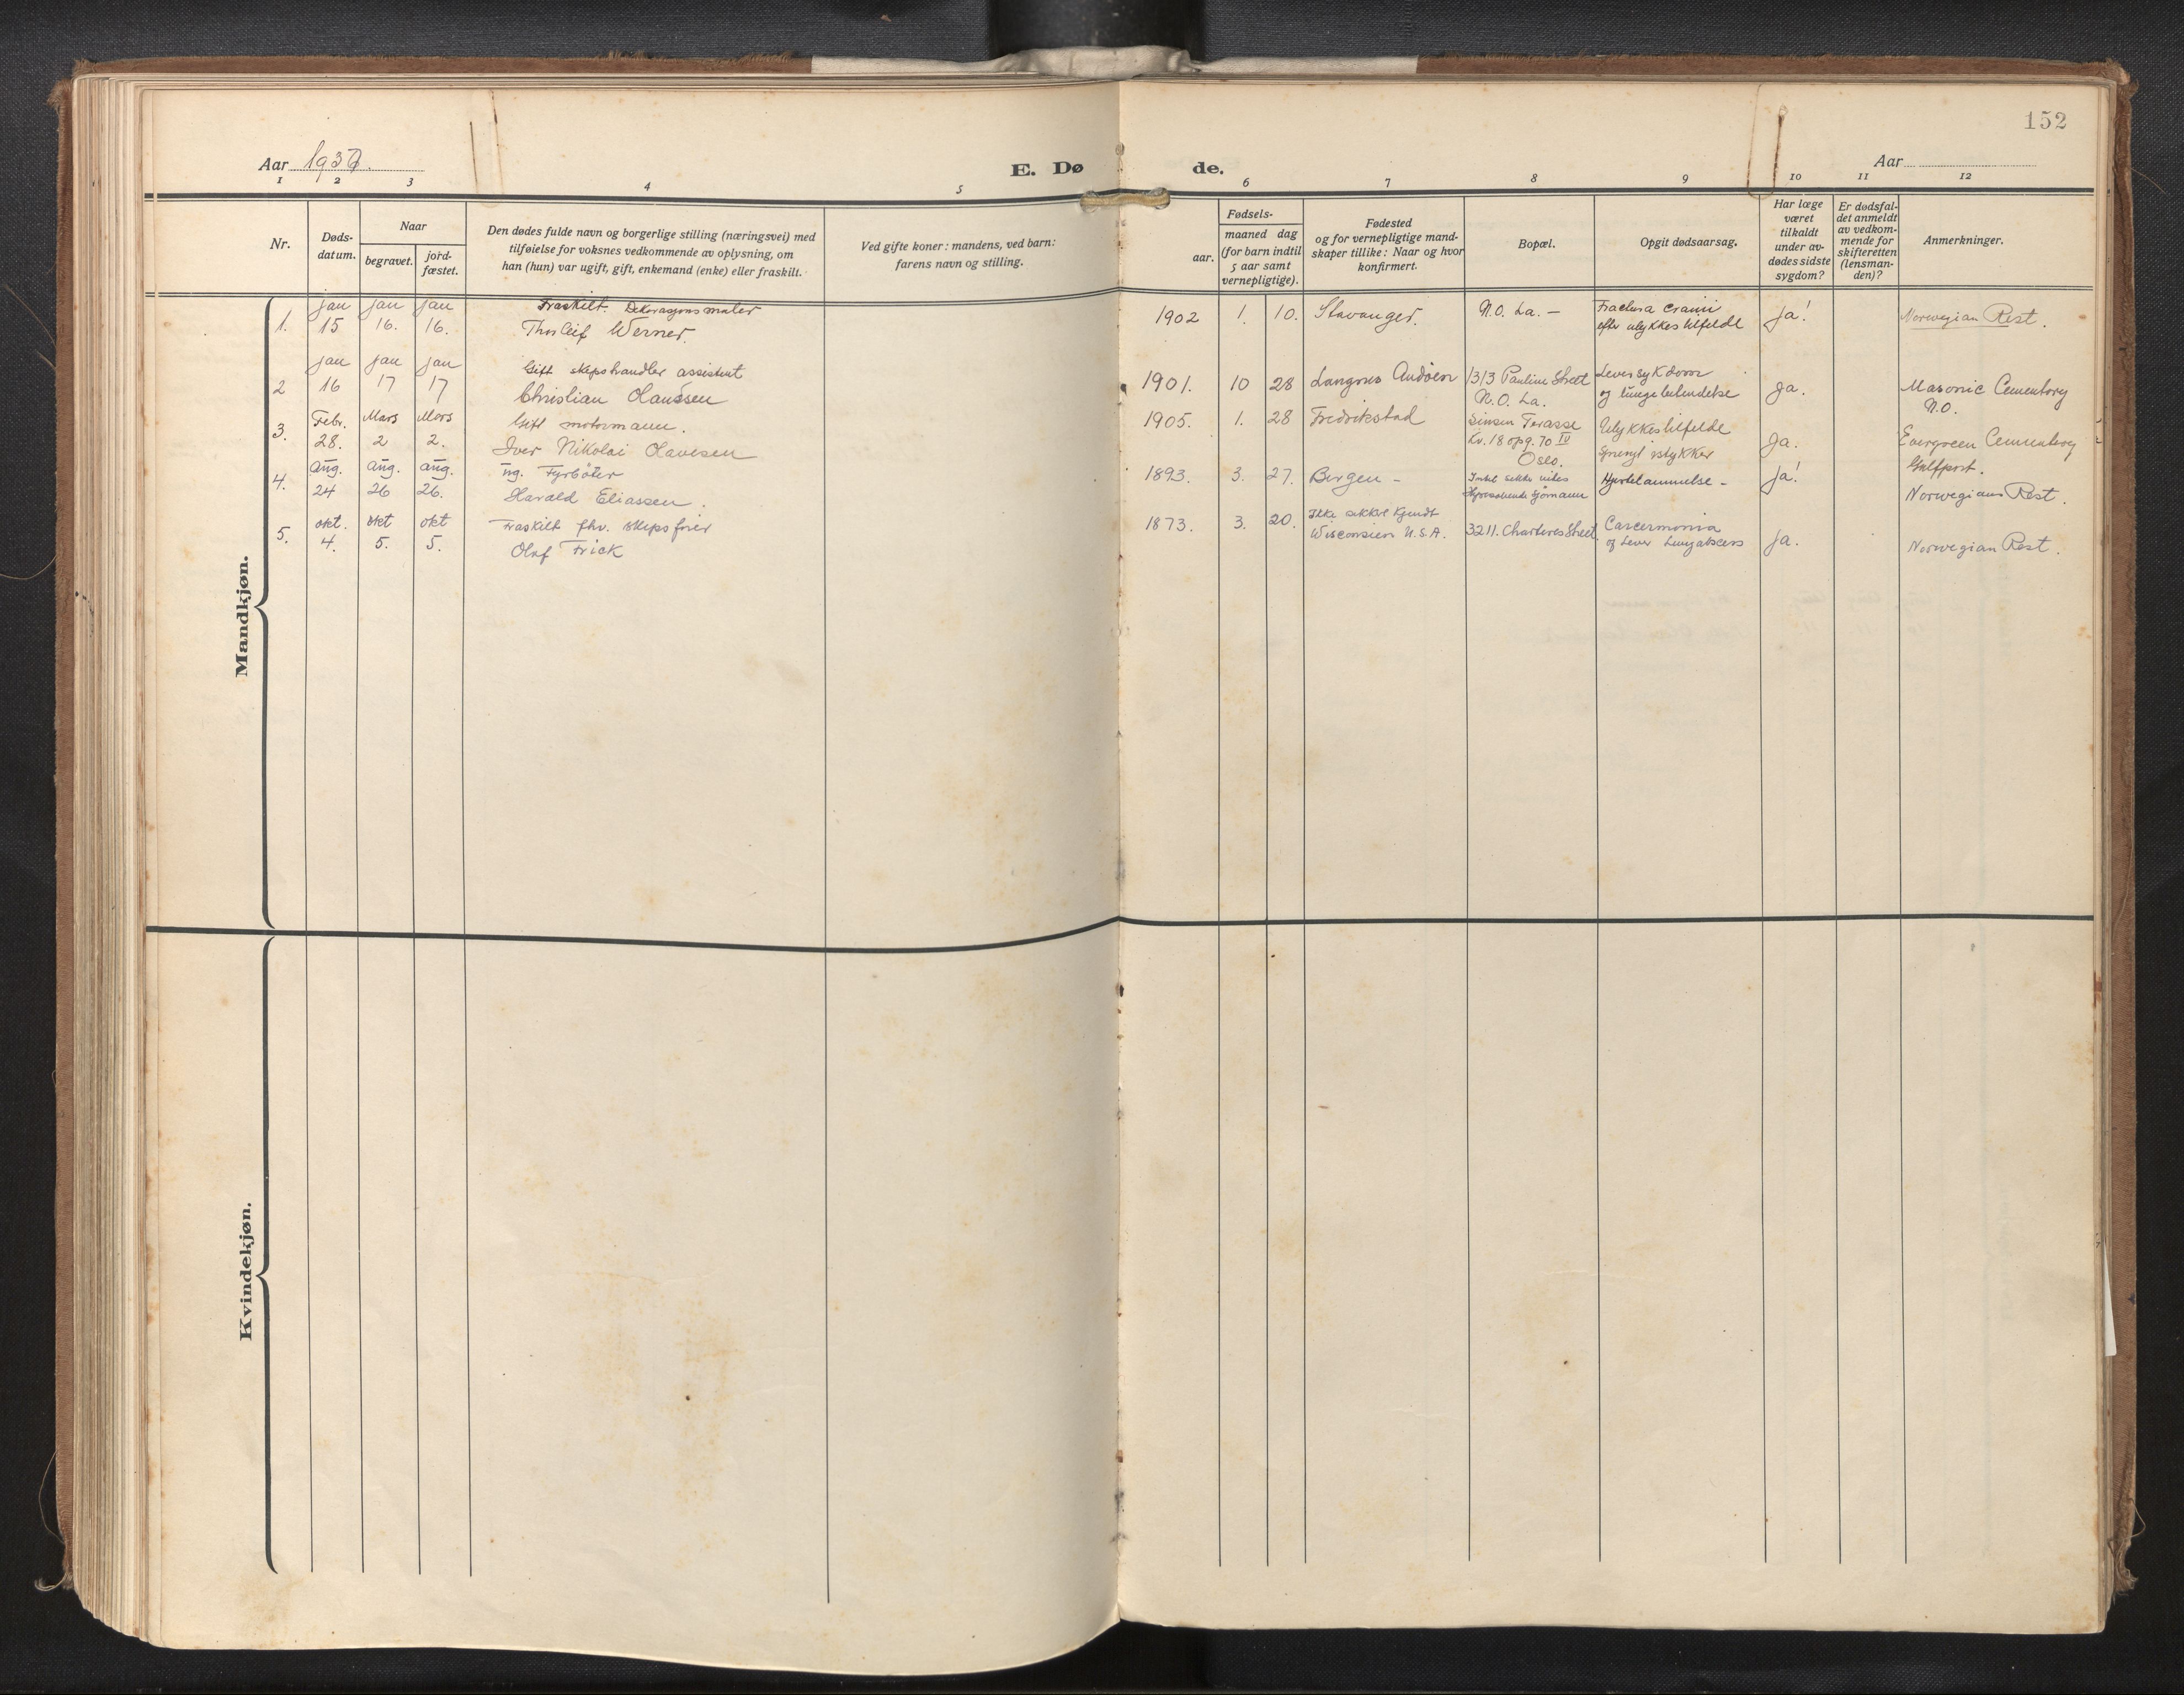 152
Aar 193
E. Dø de.
Aar
1 2 3 4 5 6 7 8 9 10 11 12
Nr.
Døds-
datum.
Naar
begravet.
jord-
fæstet.
Den dødes fulde navn og borgerlige stilling (næringsvei) med
tilføielse for voksnes vedkommende av oplysning, om
han (hun) var ugift, gift, enkemand (enke) eller fraskilt.
Ved gifte koner: mandens, ved barn:
farens navn og stilling.
Fødsels-
aar.
maaned dag
(for barn indtil
5 aar samt
vernepligtige).
Fødested
og for vernepligtige mand-
skaper tillike: Naar og hvor
konfirmert.
Bopæl.
Opgit dødsaarsag.
Har læge
været
tilkaldt
under av-
dødes sidste
sygdom?
Er dødsfal-
det anmeldt
av vedkom-
mende for
skifteretten
(lensman-
den)?
Anmerkninger.
Mandkjøn.
jan jan jan Fraskilt. Dekorasjonsmaler
1. 15 16. 16. Thorleif Werner.
1902 1. 10. Stavanger. N.O. La. — Fractura Cranii
efter ulykkestilfelde
ja! Norwegian Rest.
jan jan jan Gift skipshandler assistent
2 16 17 17 Christian Claussen
1901. 10 28 Langnes Andøen 1313 Pauline Street
N.O. La.
Leversykdom
og lungebetendelse
ja. Masonic Cementery
N.O.
Febr. Mars Mars Gift motormann.
3. 28. 2 2. Iver Nikolai Olavesen
1905. 1. 28 Fredrikstad Sinsen Terasse
Kv. 18 opg. 70 IV
Oslo.
Ulykkestilfelde
Sprengt i stykker
Ja. Evergreen Cementery
Gulfport.
aug. aug. aug. ug. Fyrbøter
4. 24 26 26. Harald Eliassen.
1893. 3. 27. Bergen – sjømann
Hjertelammelse –
ja! Norwegians Rest.
okt. okt okt Fraskilt fhv. skipsfører
5. 4. 5. 5. Olaf Frick
1873. 3. 20. Ikke sikkert kjendt
Wisconsien U.S.A.
3211. Charteres Street
og Lever
ja. Norwegian Rest.
Kvindekjøn.